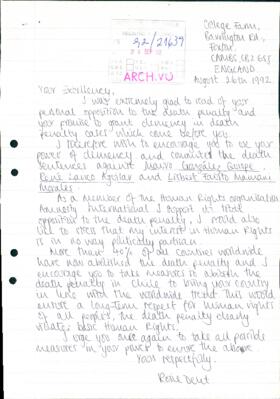 92/21639
ARCH.VO
College Farm,
Barrington Rd,
Foxton,
CAMBS. CB2 6SJ
ENGLAND
August 26th 1992
Your Excellency,
I was extremely glad to read of your
personal opposition to the death penalty and
your promise to grant clemency in death
penalty cases which come before you.
I therefore wish to encourage you to use your
power of clemency and commute the death
sentences against Mauro González Quispe,
René Sanko Aguilar and Lisbert Fausto Mamani
Morales.
As a member of the Human Rights organisation
Amnesty International I support its total
opposition to the death penalty. I would also
like to stress that my interest in Human Rights
is in no way politically partisan.
More than 40% of all countries worldwide
have now abolished the death penalty and I
encourage you to take measures to abolish the
death penalty in Chile to bring your country
in line with the worldwide trend. This would
ensure a long-term respect for human rights
of all peoples, the death penalty clearly
violates basic Human Rights.
I urge you once again to take all possible
measures in your power to ensure the above.
Yours respectfully,
Rose Dent